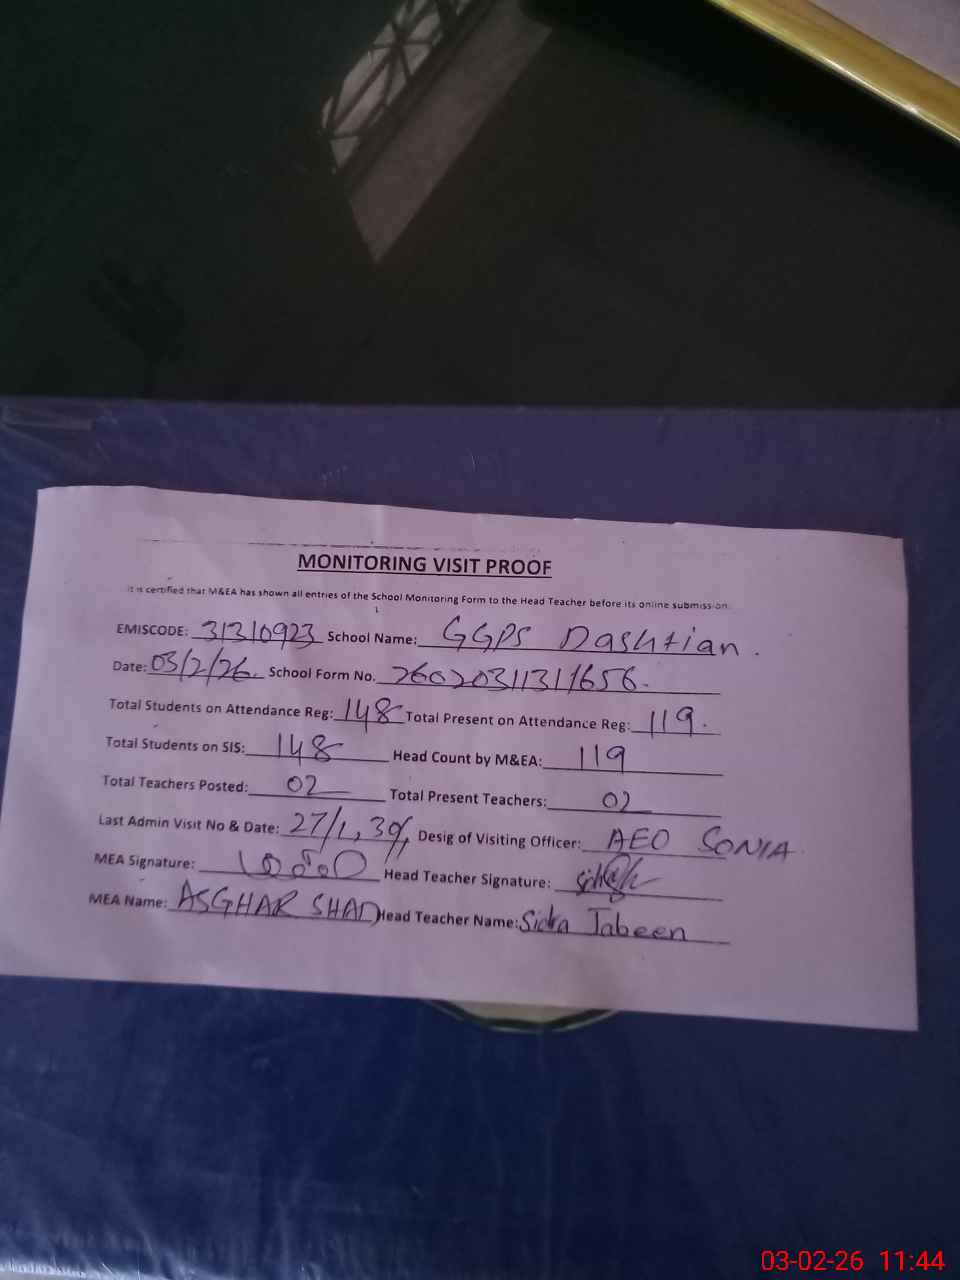 MONITORING VISIT PROOF
It is certified that M&EA has shown all entries of the School Monitoring Form to the Head Teacher before its online submission.
EMISCODE: 31310923 School Name: GGPS Dashtian.
Date: 03/2/26 School Form No. 26020311311656.
Total Students on Attendance Reg: 148 Total Present on Attendance Reg: 119.
Total Students on SIS: 148 Head Count by M&EA: 119
Total Teachers Posted: 02 Total Present Teachers: 02
Last Admin Visit No & Date: 27/1, Desig of Visiting Officer: AEO SONIA
MEA Signature: Head Teacher Signature:
MEA Name: ASGHAR SHAD Head Teacher Name: Sidra Jabeen
03-02-26 11:44